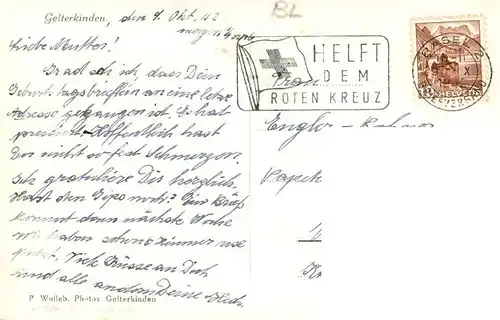 BL
Gelterkinden, den 9. Okt. 42
morgens
Liebe Mutter!
Grad seh ich, dass Dein
Geburtstagsbrieflein an eine letze
Adresse gegangen ist. Es hat
pressiert. Hoffentlich hast
Du nicht so fest Schmerzen.
Ich gratuliere Dir herzlich.
Hast den Gips noch? Ein
kommt dann nächste Woche
Wir haben schon Zimmer
putzt. Viele Grüsse an Dich
und alle andern Deine
P. Wolleb, Photos Gelterkinden
HELFT
DEM
ROTEN KREUZ
BASEL 2
X
BRIEFVERSAND
Frau
Engler-